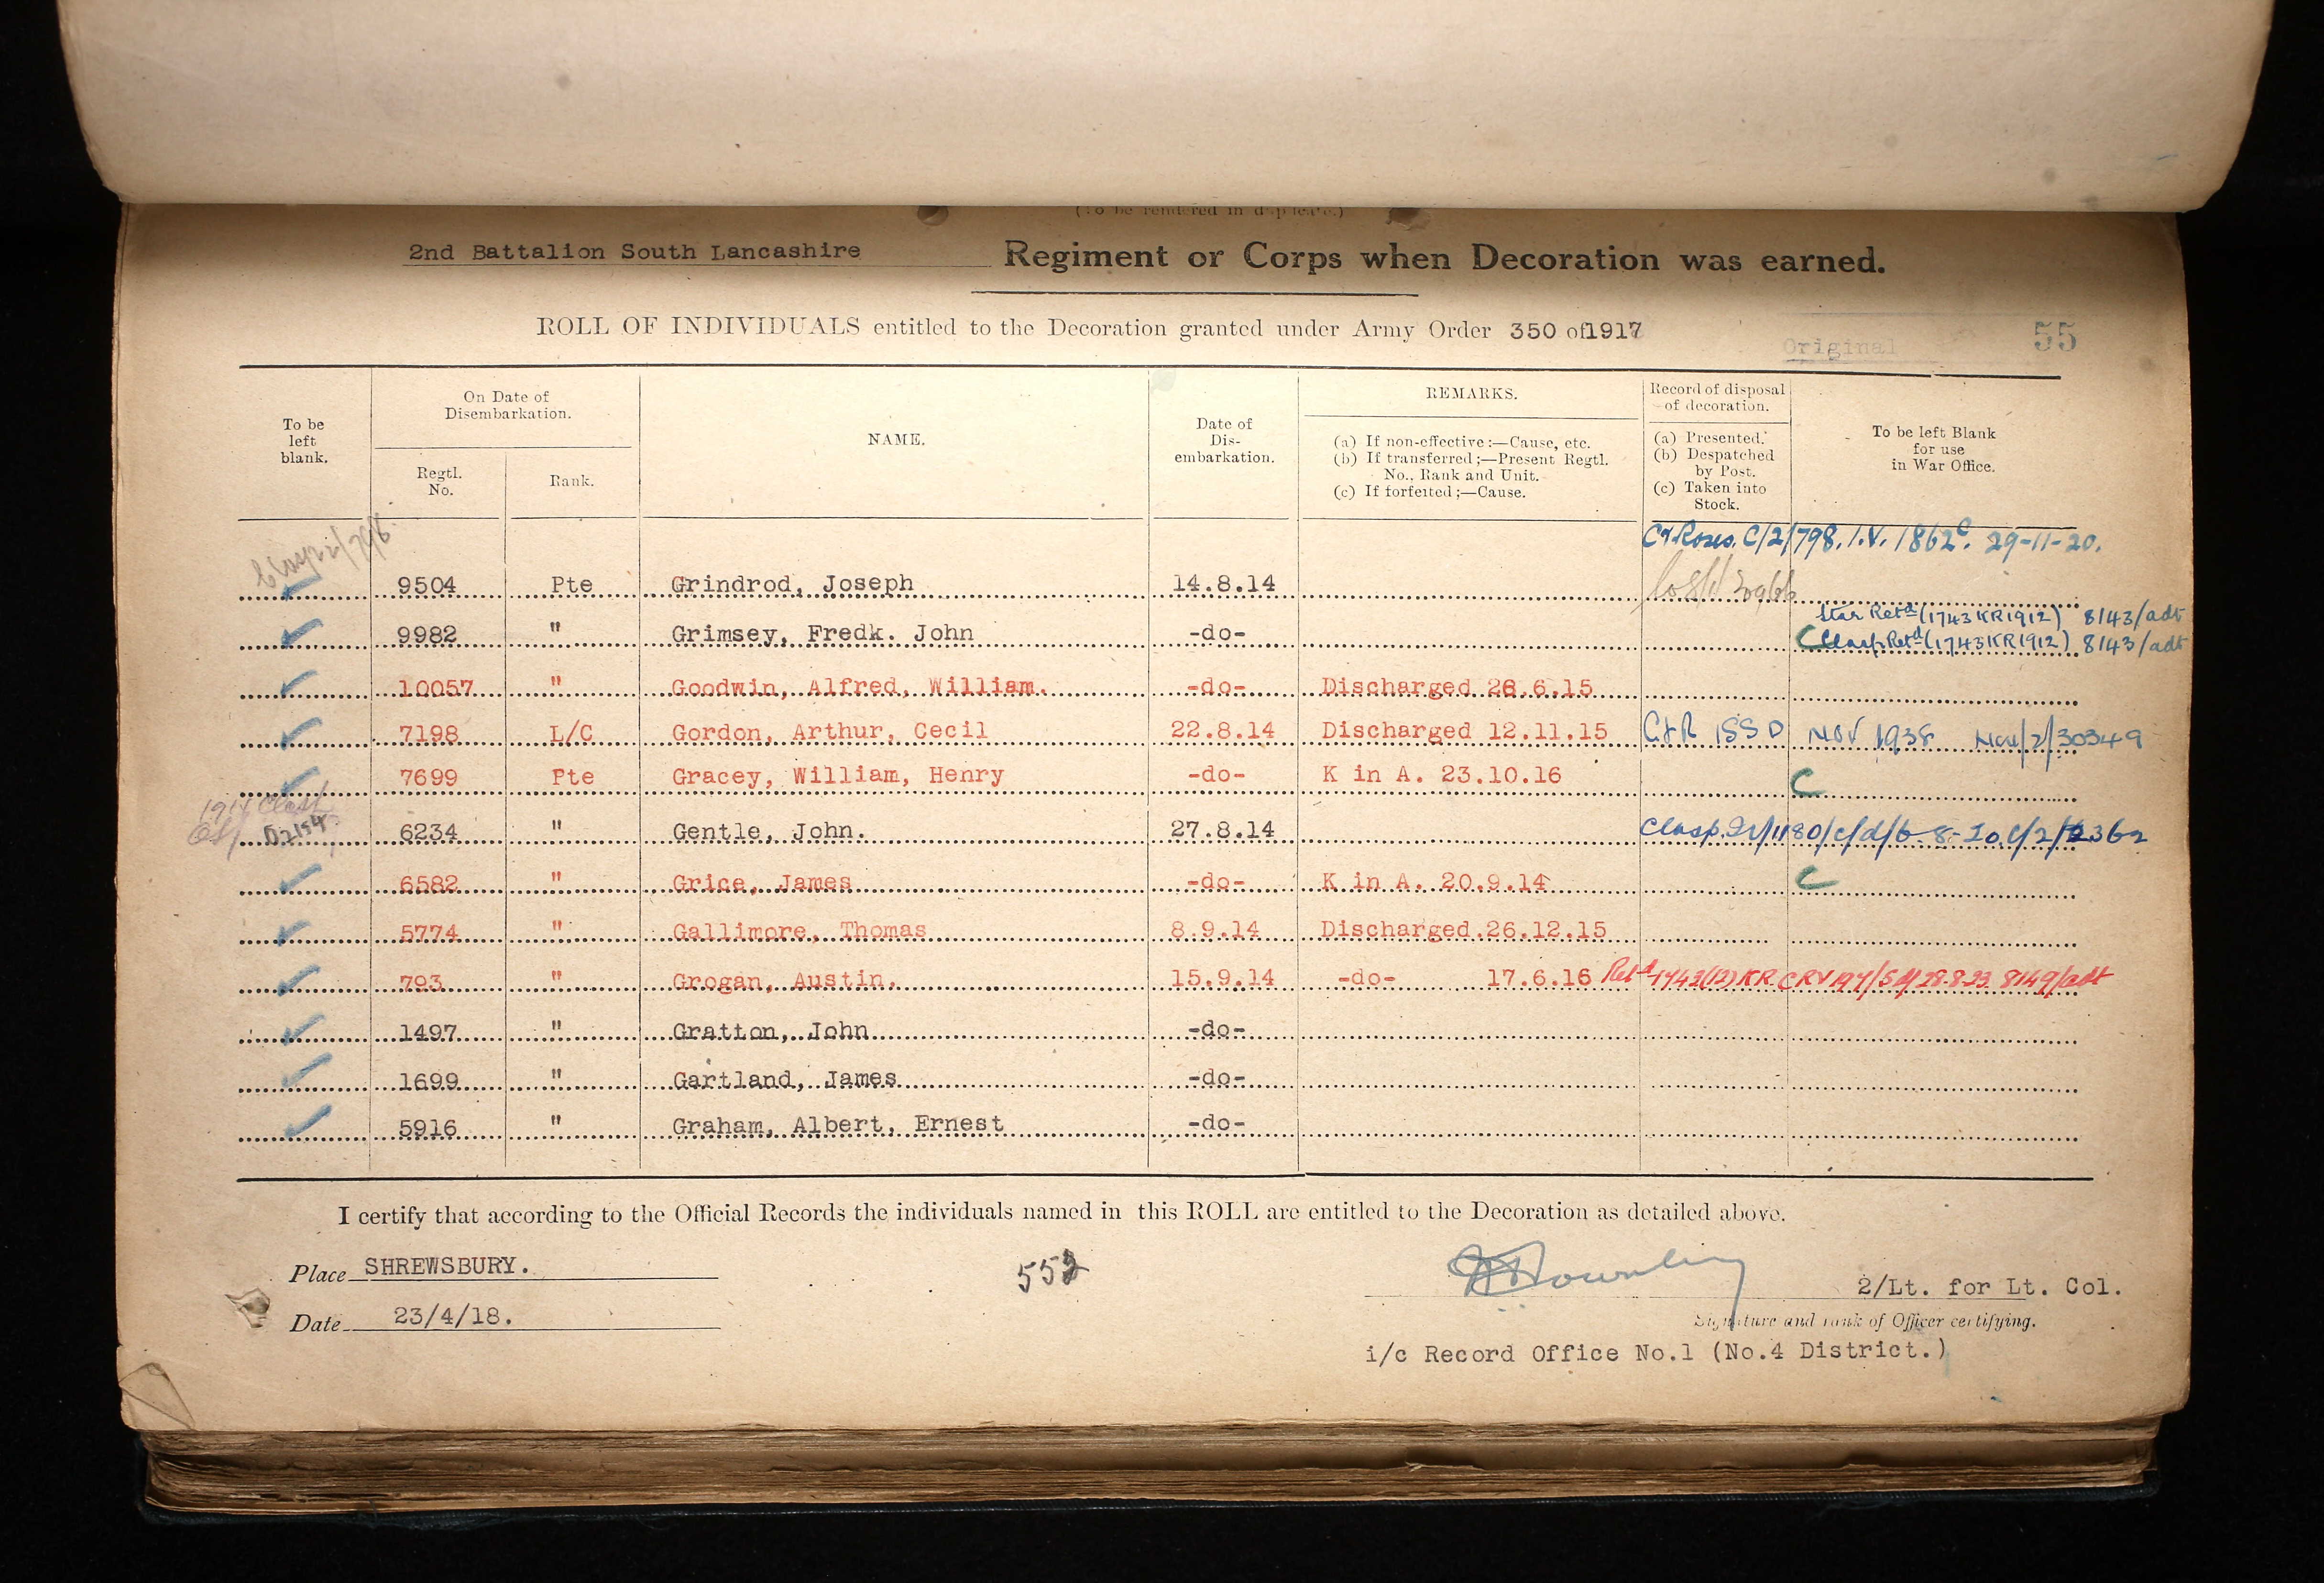 (To be rendered in duplicate.)
2nd Battalion South Lancashire Regiment or Corps when Decoration was earned.
ROLL OF INDIVIDUALS entitled to the Decoration granted under Army Order 350 of 1917
Original
55
To be left blank.
On Date of Disembarkation.
Regtl. No.
Rank.
NAME.
Date of Dis-embarkation.
REMARKS.
(a) If non-effective:—Cause, etc.
(b) If transferred;—Present Regtl. No., Rank and Unit.
(c) If forfeited;—Cause.
Record of disposal of decoration.
(a) Presented.
(b) Despatched by Post.
(c) Taken into Stock.
To be left Blank for use in War Office.
C & Roses. C/2/798. I.V. 1862c. 29-11-20.
9504 Pte Grindrod, Joseph 14.8.14
Star Retd (1743 KR 1912) 8143/adt
9982 " Grimsey, Fredk. John -do- C Clasp Retd (1743 KR 1912) 8143/adt
10057 " Goodwin, Alfred, William. -do- Discharged 26.6.15
7198 L/C Gordon, Arthur, Cecil 22.8.14 Discharged 12.11.15 C & R ISSD NOV 1938 /2/30349
7699 Pte Gracey, William, Henry -do- K in A. 23.10.16 C
1914 Clasp
D2154 6234 " Gentle, John. 27.8.14 Clasp.
6582 " Grice, James -do- K in A. 20.9.14 C
5774 " Gallimore, Thomas 8.9.14 Discharged 26.12.15
793 " Grogan, Austin, 15.9.14 -do- 17.6.16 Retd 1743(12) KR. 28.8.23 8149/adt
1497 " Gratton, John -do-
1699 " Gartland, James -do-
5916 " Graham, Albert, Ernest -do-
I certify that according to the Official Records the individuals named in this ROLL are entitled to the Decoration as detailed above.
Place SHREWSBURY.
552
2/Lt. for Lt. Col.
Date 23/4/18.
Signature and rank of Officer certifying.
i/c Record Office No.1 (No.4 District.)